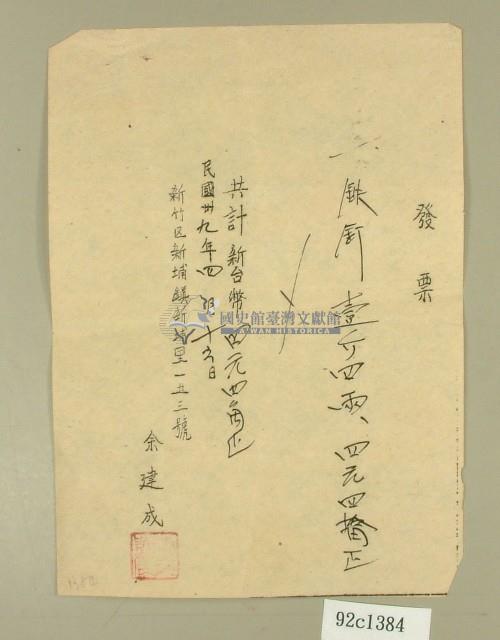 發票
一、鉄釘壹斤四兩、四元四角正
共計新台幣四元四角正
民國卅九年四月十六日
新竹区新埔鎮新星里一五三號
余建成
國史館臺灣文獻館
TAIWAN HISTORICA
92c1384